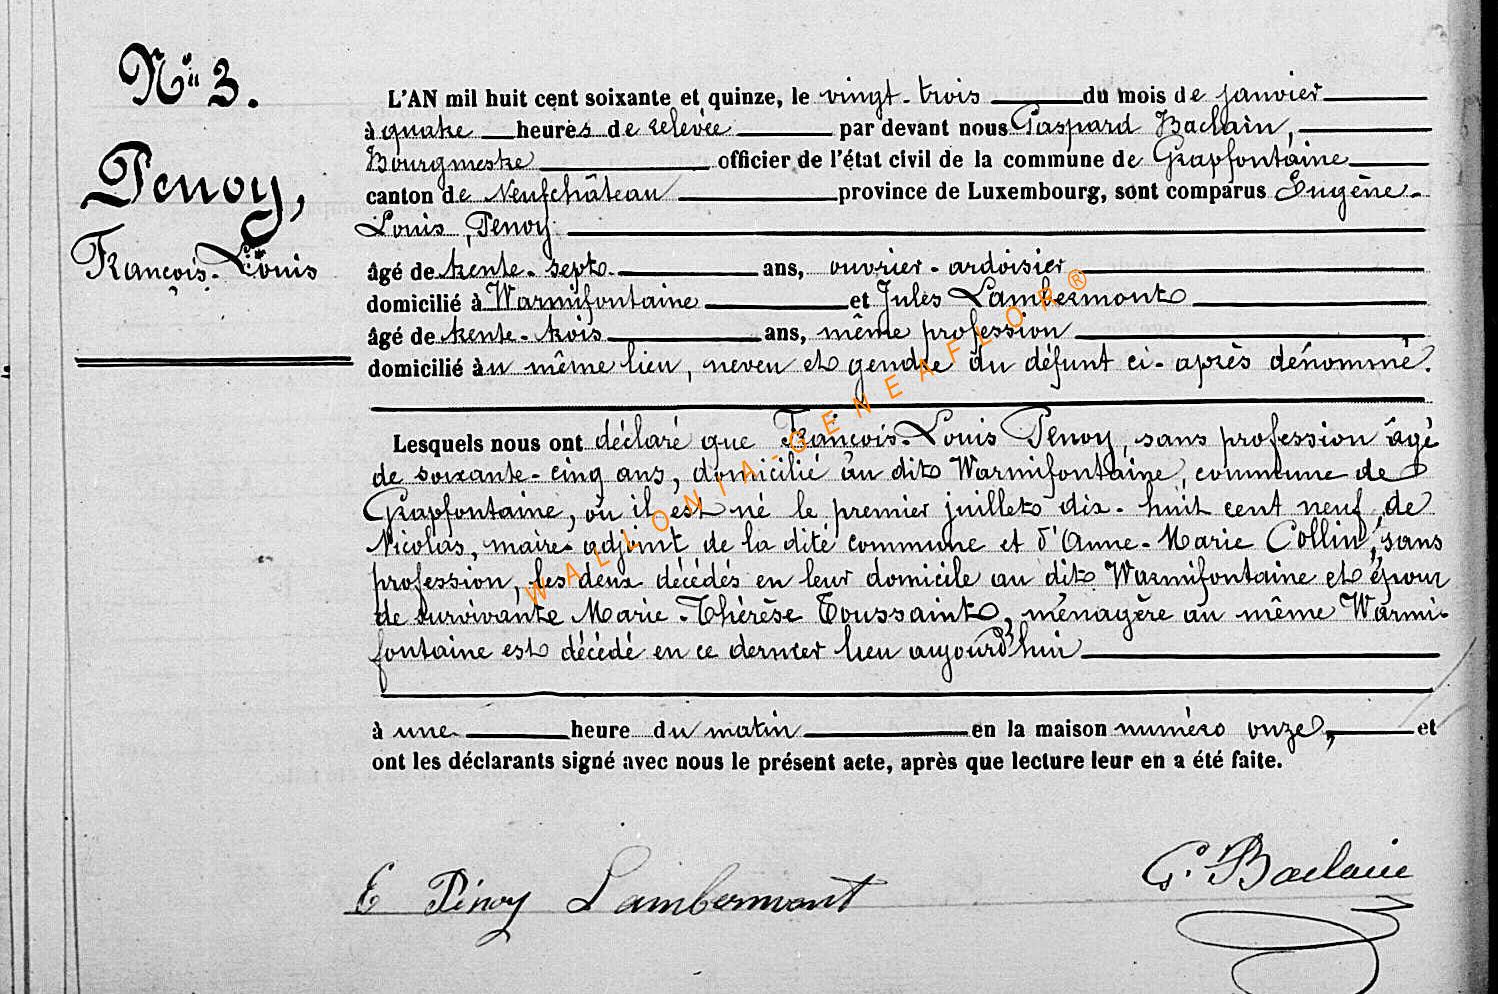 Nº 3.
Penoy,
François-Louis
L'AN mil huit cent soixante et quinze, le vingt-trois du mois de janvier
à quatre heures de relevée par devant nous Gaspard Baclain,
Bourgmestre officier de l'état civil de la commune de Grapfontaine
canton de Neufchâteau province de Luxembourg, sont comparus Eugène-
Louis Penoy
âgé de trente-sept ans, ouvrier-ardoisier
domicilié à Warmifontaine et Jules Lambermont
âgé de trente-trois ans, même profession
domicilié au même lieu, neveu et gendre du défunt ci-après dénommé.
Lesquels nous ont déclaré que François-Louis Penoy, sans profession âgé
de soixante-cinq ans, domicilié au dit Warmifontaine, commune de
Grapfontaine, où il est né le premier juillet dix-huit cent neuf, de
Nicolas, maire-adjoint de la dite commune et d'Anne-Marie Collin, sans
profession, les deux décédés en leur domicile au dit Warmifontaine et époux
de survivante Marie-Thérèse Toussaint, ménagère au même Warmi-
fontaine est décédé en ce dernier lieu aujourd'hui
à une heure du matin en la maison numéro onze, et
ont les déclarants signé avec nous le présent acte, après que lecture leur en a été faite.
E Pénoy Lambermont G. Baclain
WALLONIA-GENEAFLOR®